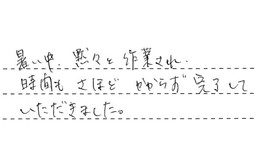 暑い中、黙々と作業され、
時間も さほど かからず 完了して
いただきました。